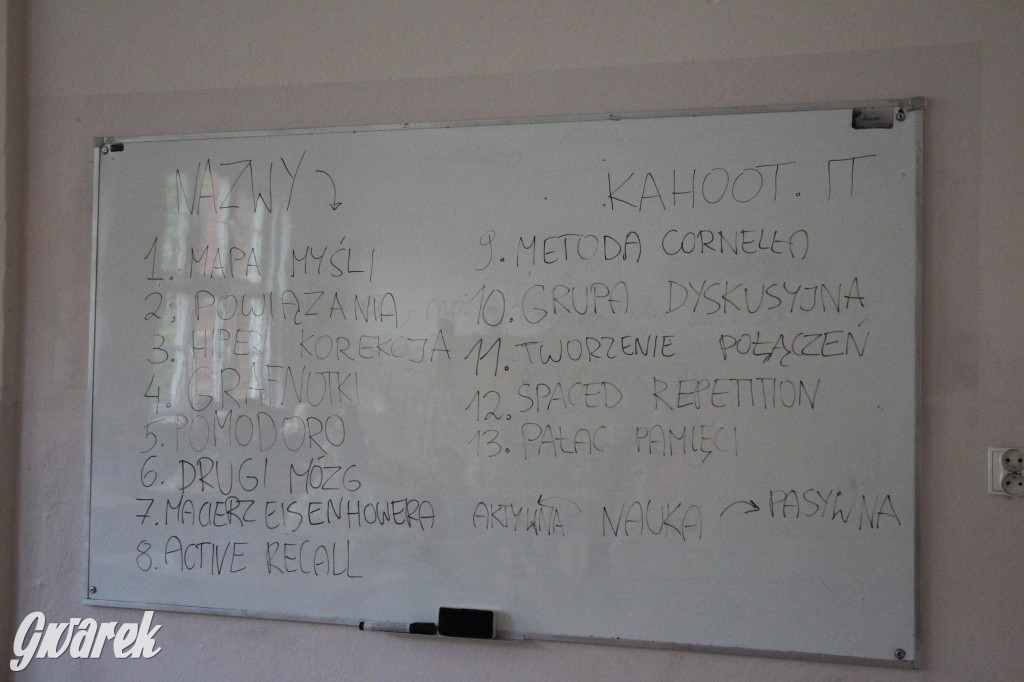 NAZWY
KAHOOT. IT
1. MAPA MYŚLI
2. POWIĄZANIA
3. HIPER KOREKCJA
4. GRAFNOTKI
5. POMODORO
6. DRUGI MÓZG
7. MACIERZ EISENHOWERA
8. ACTIVE RECALL
9. METODA CORNELŁA
10. GRUPA DYSKUSYJNA
11. TWORZENIE POŁĄCZEŃ
12. SPACED REPETITION
13. PAŁAC PAMIĘCI
AKTYWNA NAUKA → PASYWNA
Gwarek